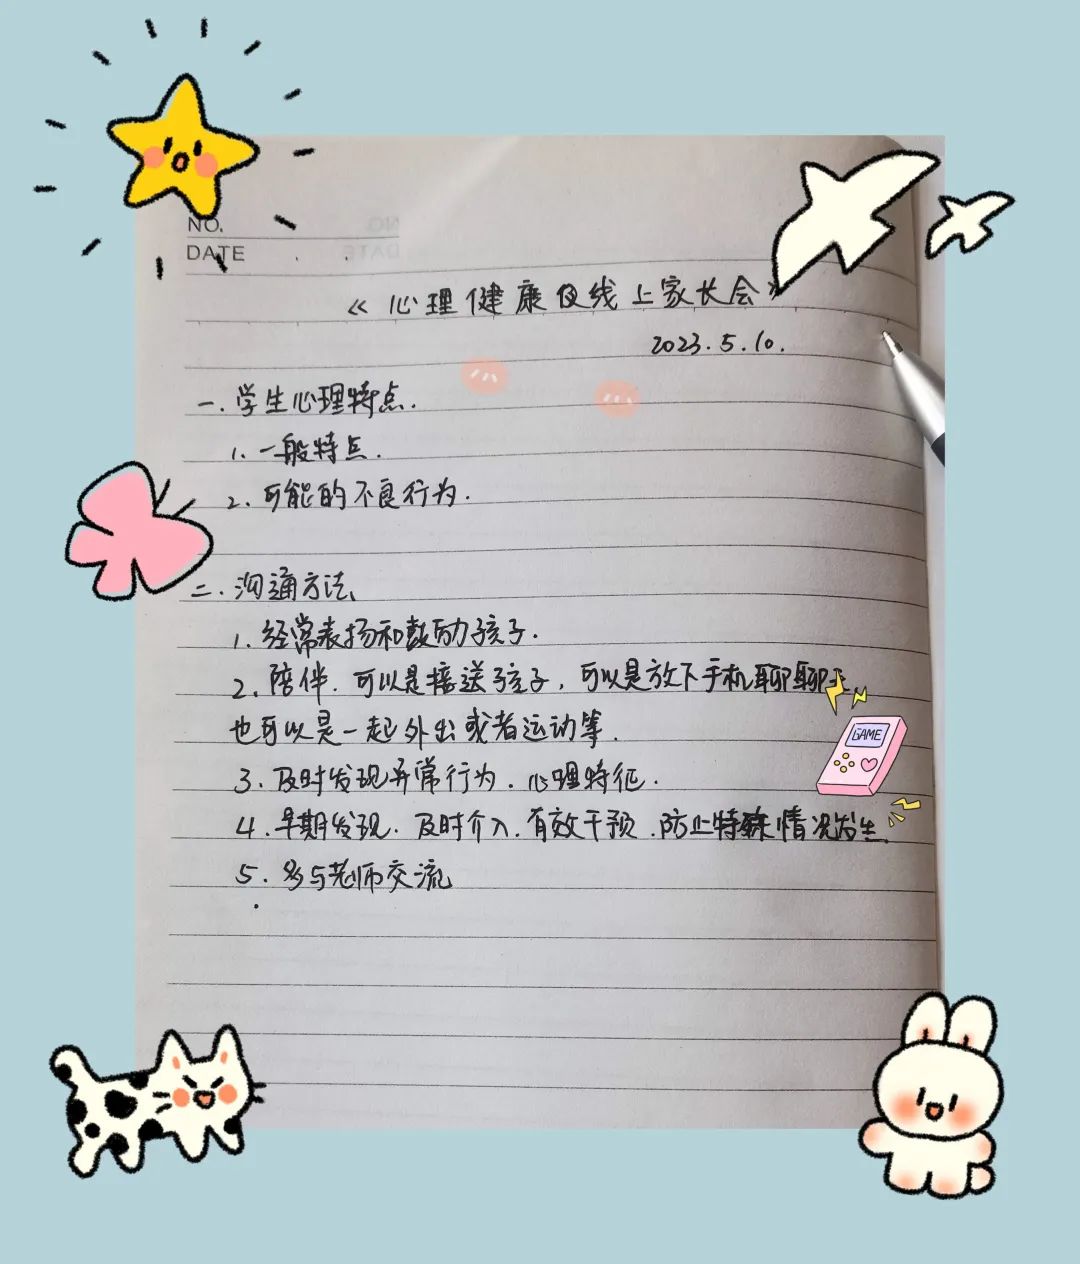 NO.
DATE
《心理健康及线上家长会》
2023.5.10.
一.学生心理特点.
1.一般特点.
2.可能的不良行为.
二.沟通方法
1.经常表扬和鼓励孩子.
2.陪伴.可以是接送孩子,可以是放下手机聊聊天,
也可以是一起外出或者运动等.
3.及时发现异常行为.心理特征.
4.早期发现.及时介入.有效干预.防止特殊情况发生
5.多与老师交流
GAME